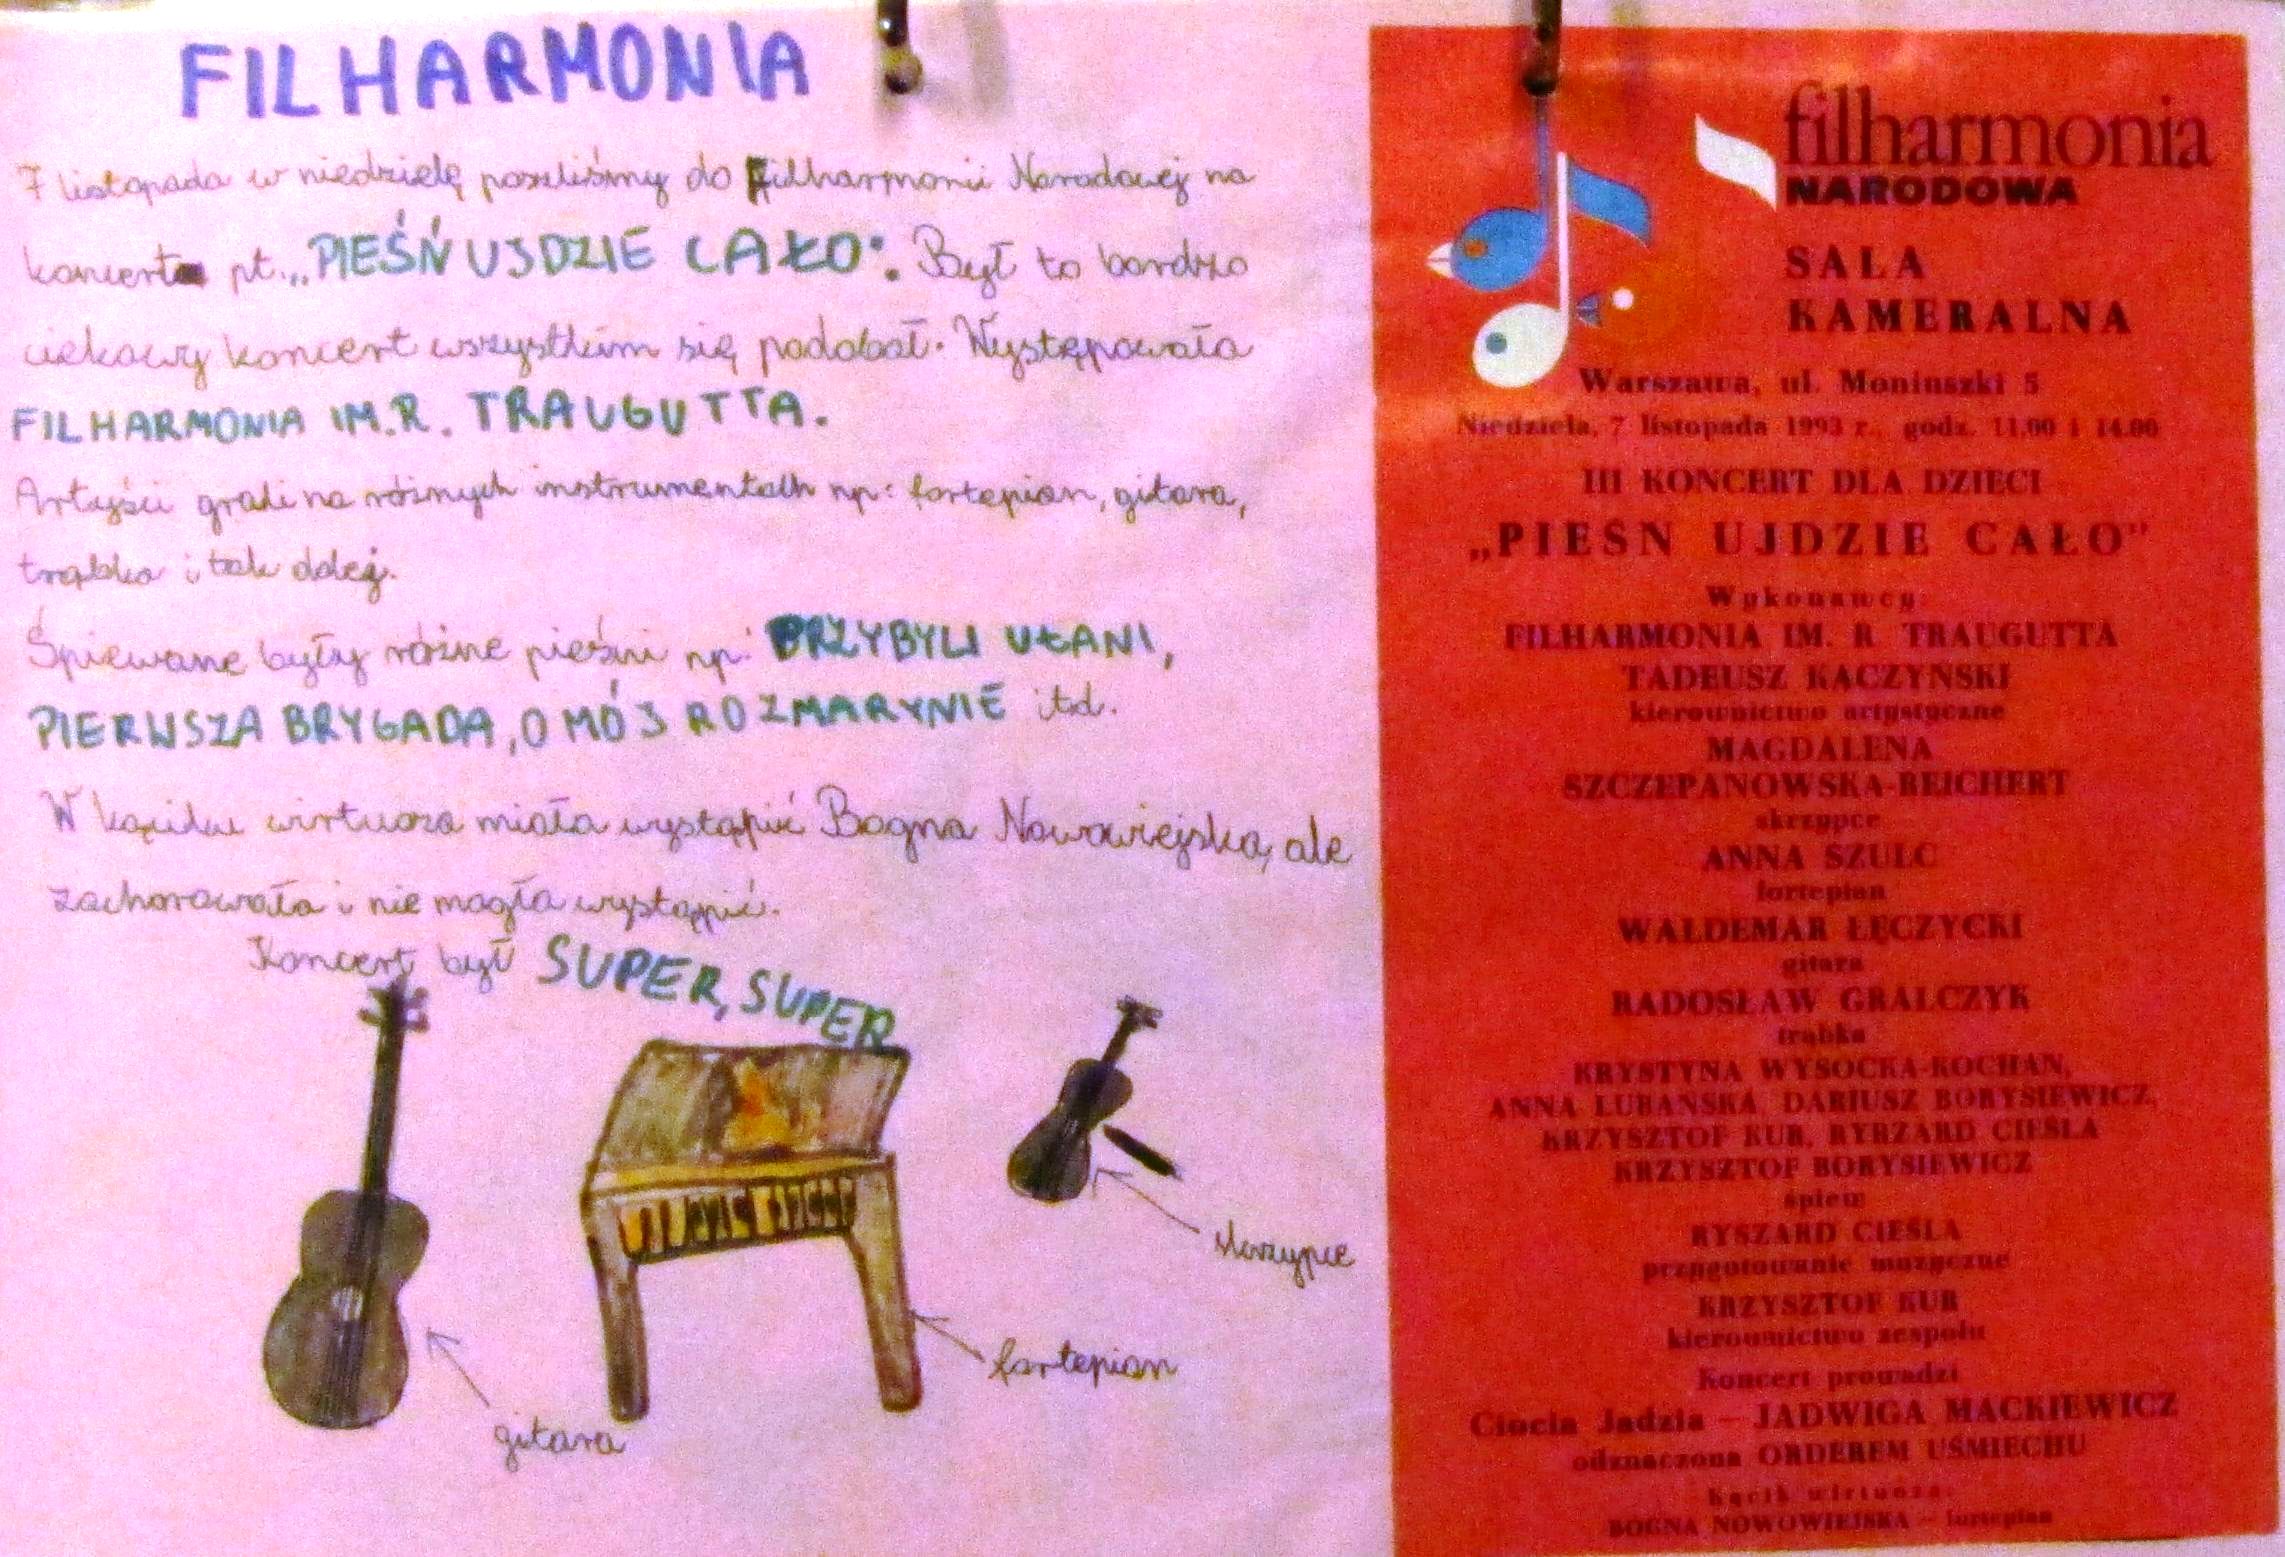 FILHARMONIA
7 listopada w niedzielę poszliśmy do Filharmonii Narodowej na
koncert pt. „PIEŚŃ UJDZIE CAŁO". Był to bardzo
ciekawy koncert wszystkim się podobał. Występowała
FILHARMONIA IM.R. TRAUGUTTA.
Artyści grali na różnych instrumentach np: fortepian, gitara,
trąbka i tak dalej.
Śpiewane były różne pieśni np: PRZYBYLI UŁANI,
PIERWSZA BRYGADA, O MÓJ ROZMARYNIE itd.
W kąciku wirtuoza miała wystąpić Bogna Nowowiejska, ale
zachorowała i nie mogła wystąpić.
Koncert był SUPER, SUPER
skrzypce
fortepian
gitara
filharmonia
NARODOWA
SALA
KAMERALNA
Warszawa, ul. Moniuszki 5
Niedziela, 7 listopada 1993 r., godz. 11.00 i 14.00
III KONCERT DLA DZIECI
„PIEŚŃ UJDZIE CAŁO"
Wykonawcy:
FILHARMONIA IM. R. TRAUGUTTA
TADEUSZ KACZYŃSKI
kierownictwo artystyczne
MAGDALENA
SZCZEPANOWSKA-REICHERT
skrzypce
ANNA SZULC
fortepian
WALDEMAR ŁĘCZYCKI
gitara
RADOSŁAW GRALCZYK
trąbka
KRYSTYNA WYSOCKA-KOCHAN,
ANNA LUBAŃSKA, DARIUSZ BORYSIEWICZ,
KRZYSZTOF KUR, RYRZARD CIEŚLA
KRZYSZTOF BORYSIEWICZ
śpiew
RYSZARD CIEŚLA
przygotowanie muzyczne
KRZYSZTOF KUR
kierownictwo zespołu
Koncert prowadzi
Ciocia Jadzia — JADWIGA MACKIEWICZ
odznaczona ORDEREM UŚMIECHU
Kącik wirtuoza:
BOGNA NOWOWIEJSKA — fortepian